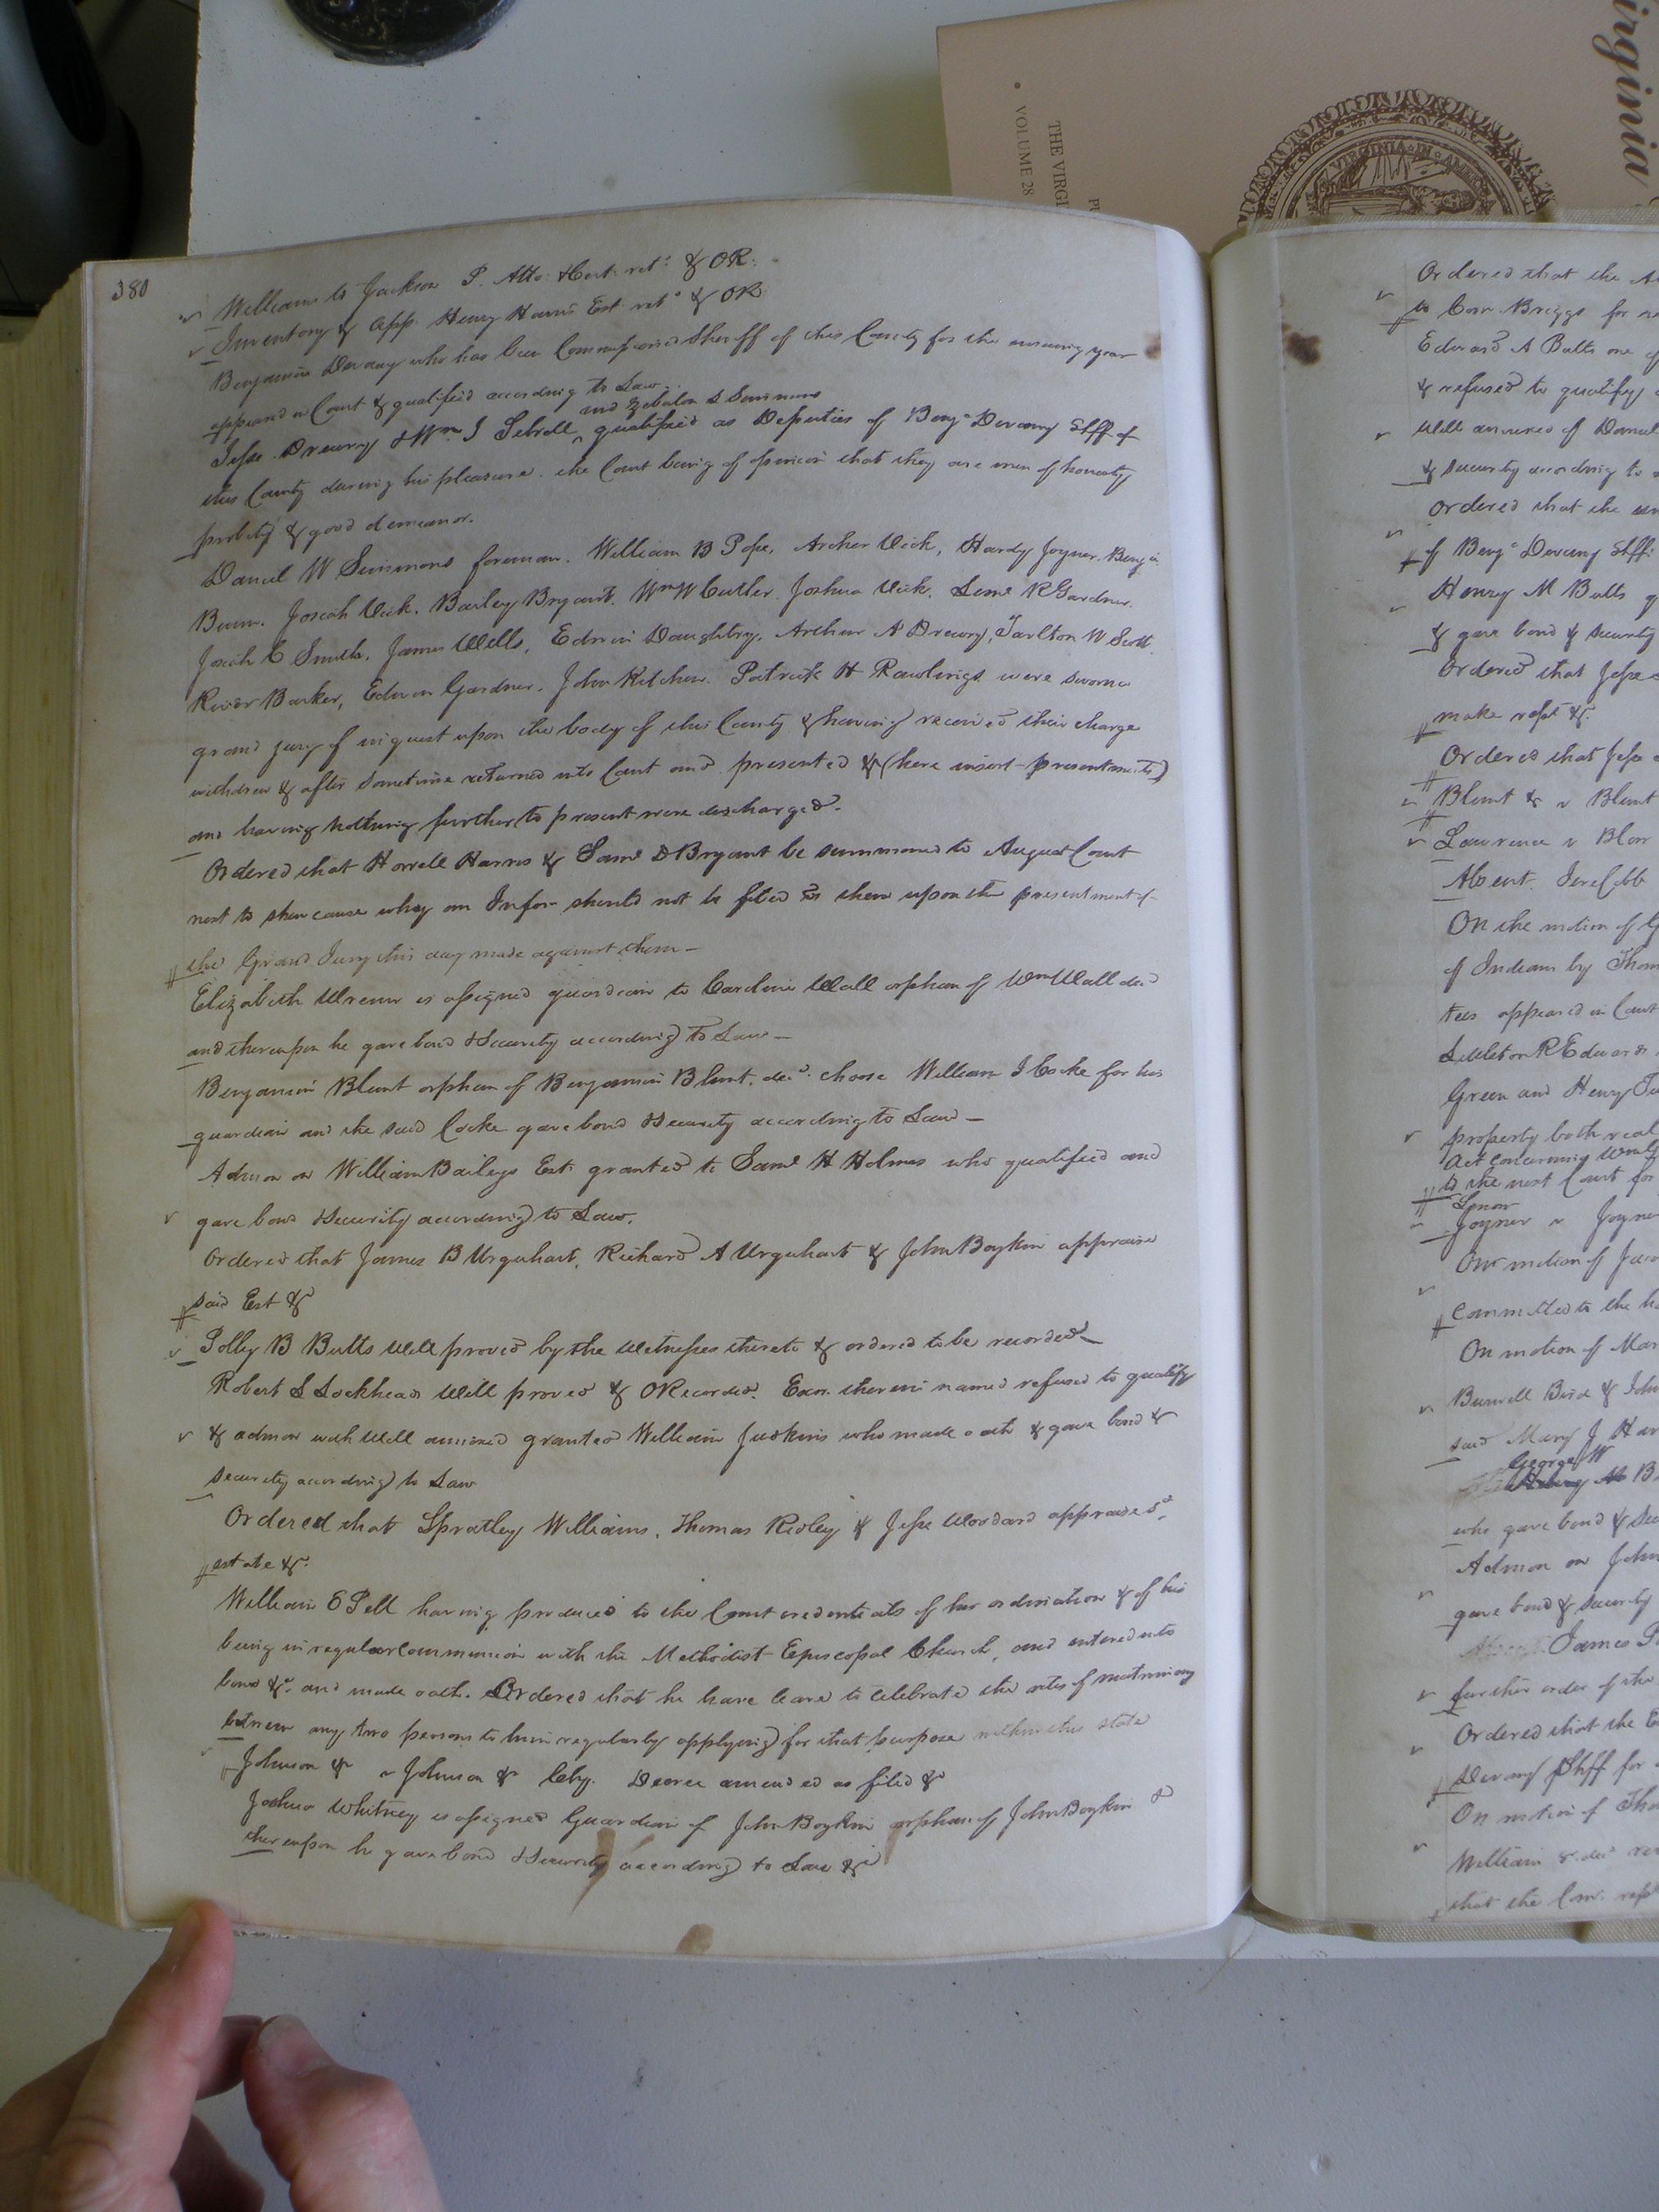 irginia
THE VIRGI
VOLUME 28
VIRGINIA IN A
380
Williams to Jackson P. Atto: & Cert. ret.d & OR.
Inventory & App. Henry Harris Est. ret.d & OR
Benjamin Devany who has been Commissioned Sheriff of this County for the ensuing year
appeared in Court & qualified according to Law.
and Zebulon S Simmons
Jesse Drewry & Wm J Sebrell qualified as Deputies of Benj.a Devany Shff of
this County during his pleasure. the Court being of opinion that they are men of honesty
probity & good demeanor.
Daniel W Simmons foreman. William B Pope, Archer Vick, Hardy Joyner. Benj.a
Bunn. Josiah Vick. Bailey Bryant. Wm W Cutler. Joshua Vick. Seml R Gardner.
Josiah C Smith, James Wells, Edwin Daughtry, Arthur A Drewry, Tarlton W Scott
Barker, Edwin Gardner. John Kitchen. Patrick H Rawlings were sworn a
grand jury of inquest upon the body of this County & having received their charge
withdrew & after sometime returned into Court and presented & (here insert presentments)
and having nothing further to present were discharged.
Ordered that Horrell Harris & Saml D Bryant be summoned to August Court
next to shew cause why an Infor. should not be filed vs them upon the presentment of
the Grand Jury this day made against them—
Elizabeth Wrenn is assigned guardian to Caroline Wall orphan of Wm Wall decd
and thereupon he gave bond & Security according to Law—
Benjamin Blunt orphan of Benjamin Blunt. decd. choose William J Cocke for his
guardian and the said Cocke gave bond & Security according to Law—
Admon on William Baileys Est: granted to Saml H Holmes who qualified and
gave bond & Security according to Law.
Ordered that James B Urquhart, Richard A Urquhart & John Boykin appraise
said Est &c
Polly B Butts Will proved by the Witnesses thereto & ordered to be recorded—
Robert S Lockhead Will proved & ORecorded. Exor. therein named refused to qualify
& admon with Will annexed granted William Judkins who made oath & gave bond &
security according to Law
Ordered that Spratley Williams, Thomas Ridley & Jesse Woodard appraise sd
estate &c.
William E Pell having produced to the Court credentials of his ordination & of his
being in regular Communion with the Methodist Episcopal Church, and entered into
bond &c. and made oath. Ordered that he have leave to celebrate the rites of matrimony
between any two persons to him regularly applying for that purpose within this state
Johnson &c v Johnson &c Chy. Decree amended as filed &c
Joshua Whitney is assigned Guardian of John Boykin orphan of John Boykin &
thereupon he gave bond & Security according to Law &c
Ordered that the
to Com. Briggs for
Edward A Butts one of
& refused to qualify
Will annexed of Daniel
& security according to
Ordered that the
of Benj.a Devany Shff.
Henry M Butts
& gave bond & security
Ordered that Jesse
make rept &c.
Ordered that Jesse
Blunt & v Blunt
Lawrence v
Absent.
On the motion of
of Indians by Thom
tees appeared in Court
Littleton R Edwards
Green and Henry
property both real
Act concerning
to the next Court for
Joyner v Joyne
On motion of
Committed to the
On motion of Mar
Burwell Bird & John
said Mary J Har
George W
who gave bond &
Admon on John
gave bond & security
James
further order of the
Ordered that the
Devany Shff for
On motion of Tho
William
that the Com.